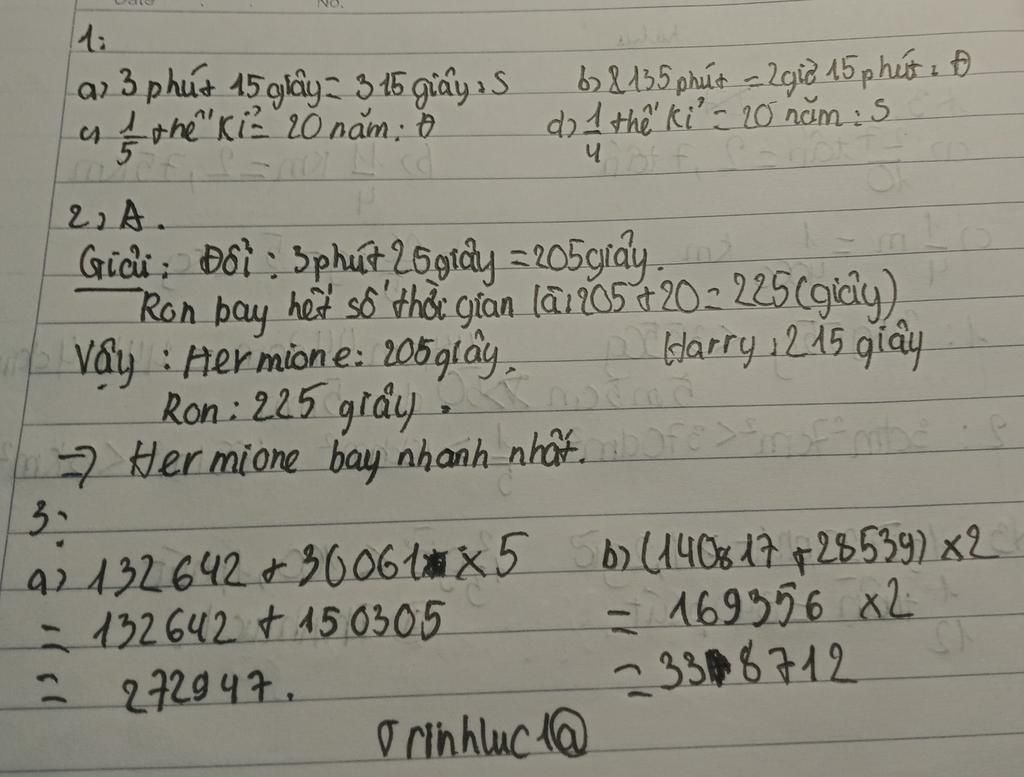 No.
1:
a, 3 phút 15 giây = 315 giây: S b, 135 phút = 2 giờ 15 phút: Đ
c, 1/5 thế kỉ = 20 năm: Đ d, 1/4 thế kỉ = 20 năm: S
2, A.
Giải: Đổi: 3 phút 25 giây = 205 giây.
Ron bay hết số thời gian là: 205 + 20 = 225 (giây)
Vậy: Hermione: 205 giây. Harry: 215 giây
Ron: 225 giây.
=> Hermione bay nhanh nhất.
3:
a, 132642 + 30061 x 5 b, (140817 + 28539) x 2
= 132642 + 150305 = 169356 x 2
= 272947. = 338712
Trinhluc1@